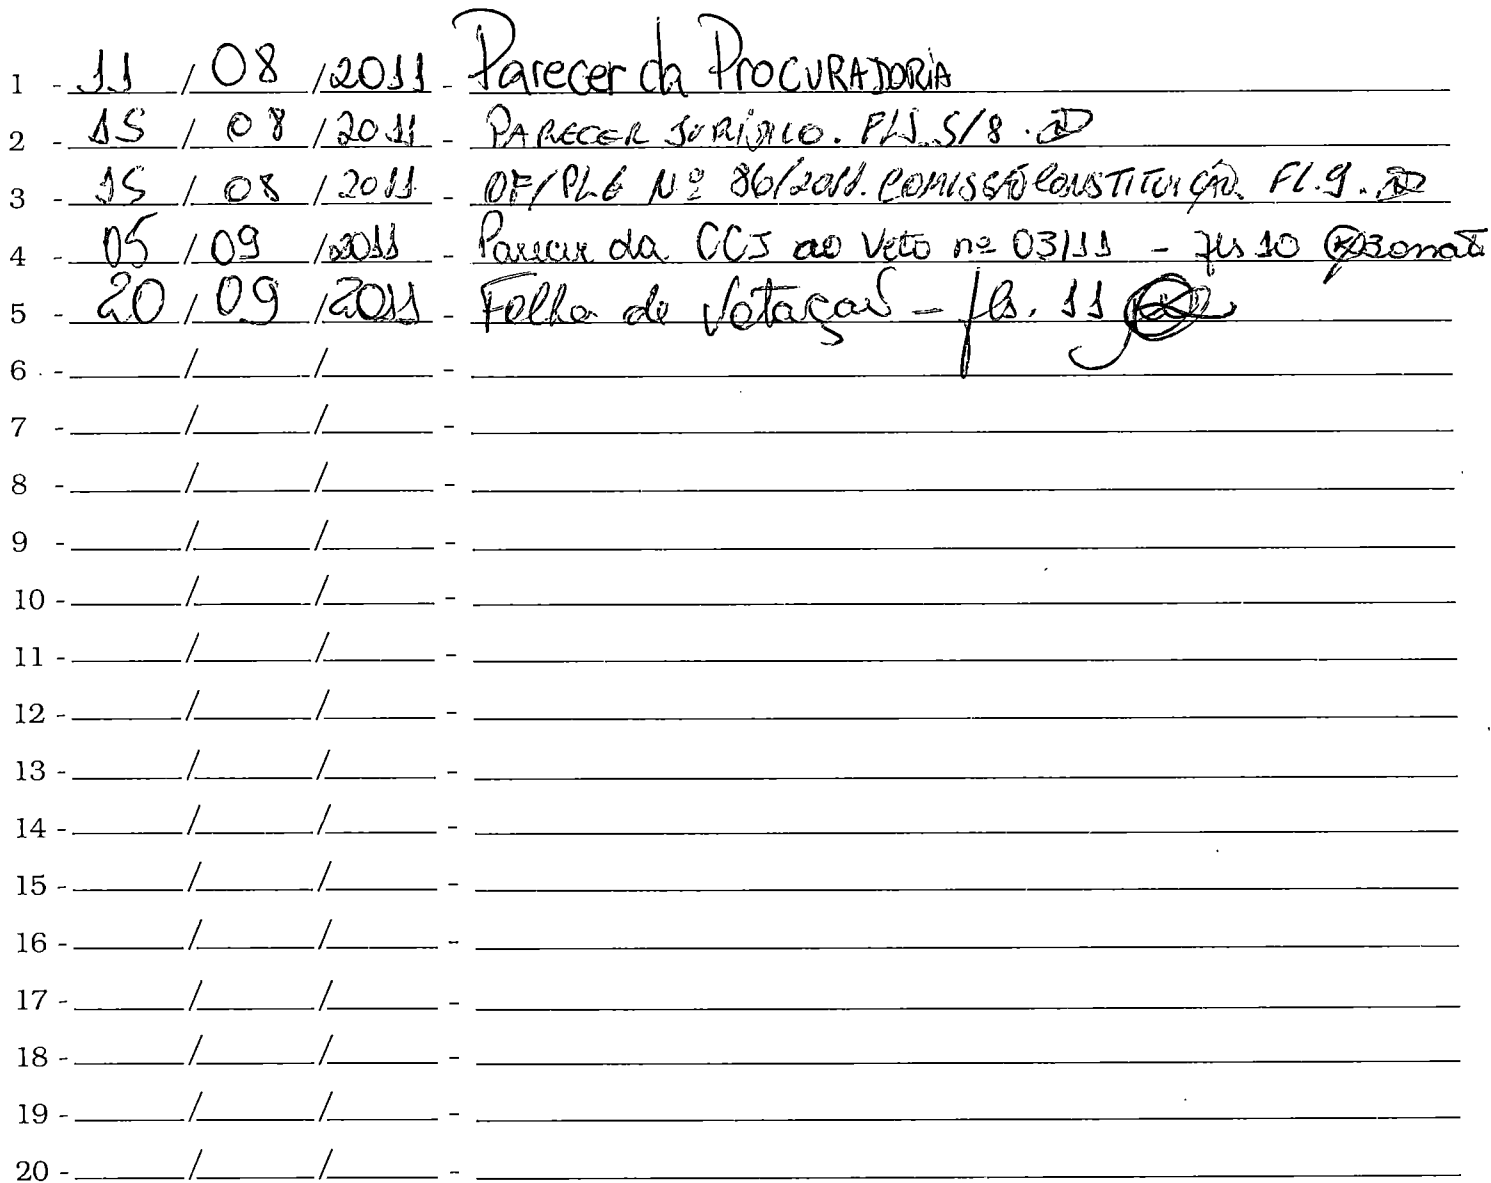 1 - 11 / 08 / 2011 - Parecer da PROCURADORIA
2 - 15 / 08 / 2011 - PARECER JURÍDICO. FLS. 5/8.
3 - 15 / 08 / 2011 - OF/PLG Nº 86/2011. COMISSÃO CONSTITUIÇÃO. FL. 9.
4 - 05 / 09 / 2011 - Parecer da CCJ ao Veto nº 03/11 - fls 10
5 - 20 / 09 / 2011 - Folha de Votação - fls. 11
6 - / / -
7 - / / -
8 - / / -
9 - / / -
10 - / / -
11 - / / -
12 - / / -
13 - / / -
14 - / / -
15 - / / -
16 - / / -
17 - / / -
18 - / / -
19 - / / -
20 - / / -